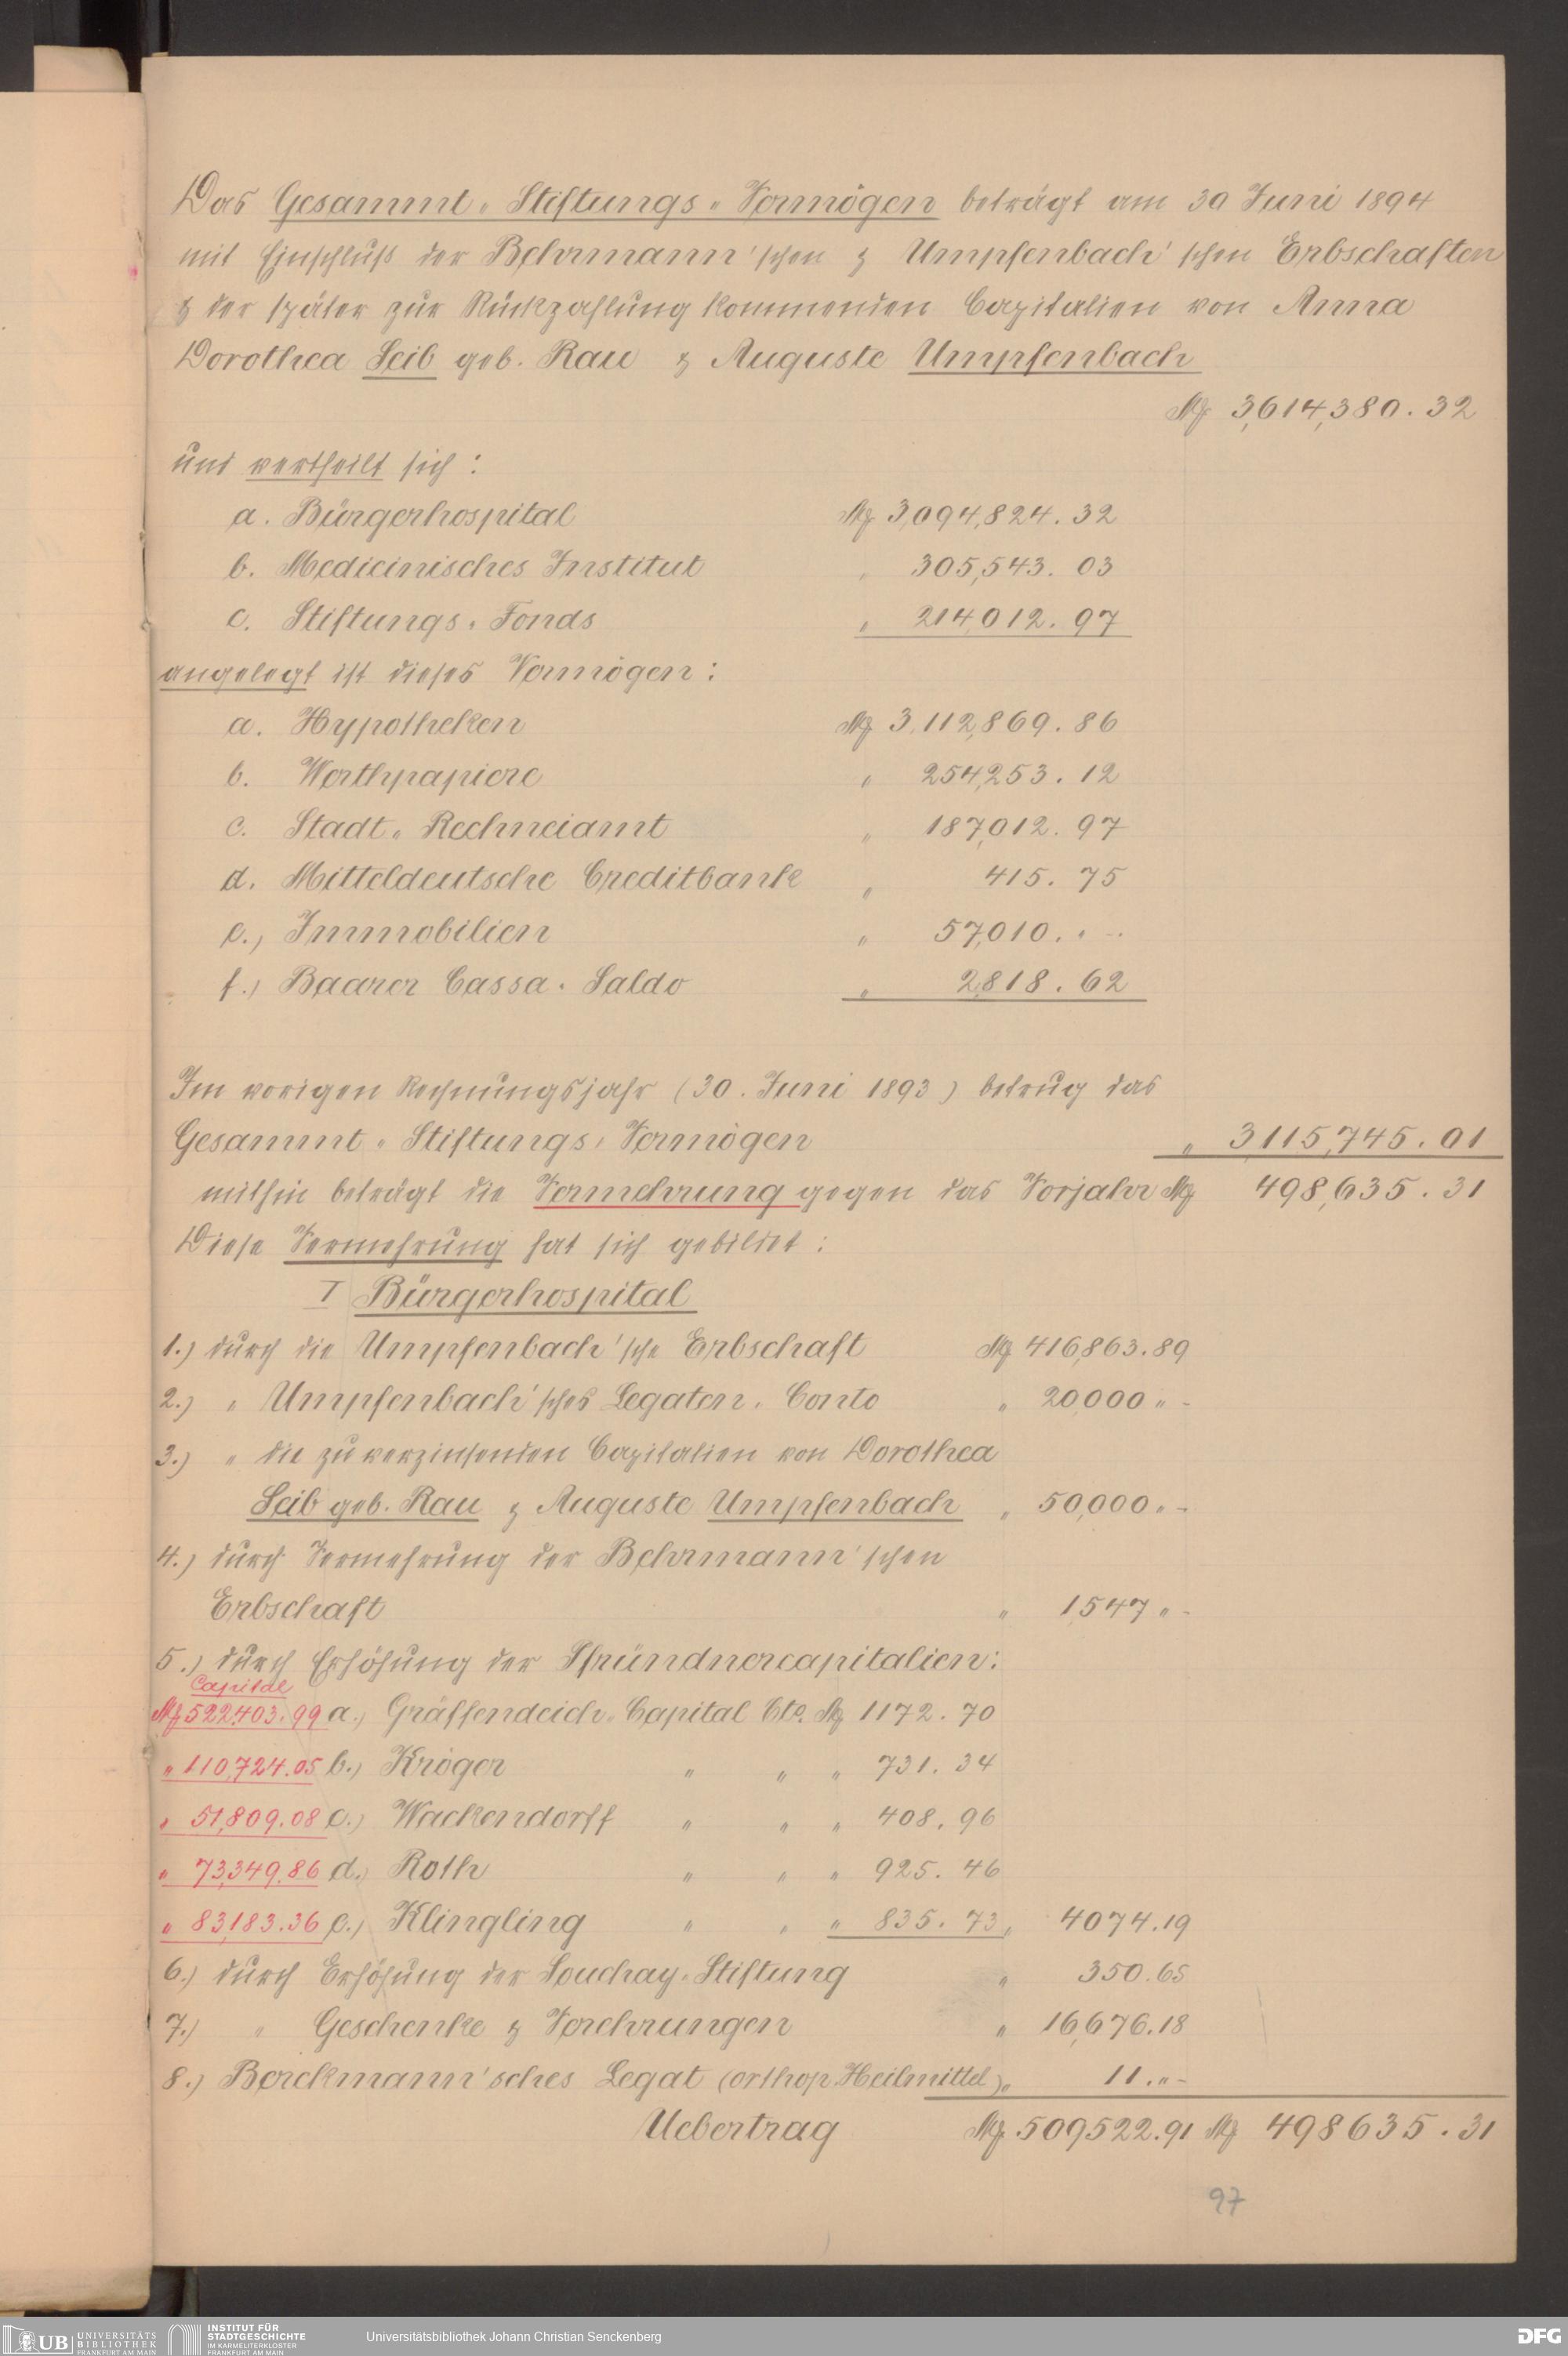 Das Gesammt-Stiftungs-Vermögen beträgt am 30 Juni 1894
mit Einschluß der Behrmann'schen & Umpfenbach'schen Erbschaften
& der später zur Rückzahlung kommenden Capitalien von Anna
Dorothea Leib geb. Rau & Auguste Umpfenbach
M 3,614,380.32
und vertheilt sich:
a. Bürgerhospital M 3,094,824.32
b. Medicinisches Institut " 305,543.03
c. Stiftungs-Fonds " 214,012.97
angelegt ist dieses Vermögen:
a. Hypotheken M 3,112,869.86
b. Werthpapiere " 254,253.12
c. Stadt-Rechneiamt " 187,012.97
d. Mitteldeutsche Creditbank " 415.75
e.) Immobilien " 57,010. " -
f.) Baarer Cassa-Saldo " 2,818.62
Im vorigen Rechnungsjahr (30. Juni 1893) betrug das
Gesammt-Stiftungs-Vermögen " 3,115,745.01
mithin beträgt die Vermehrung gegen das Vorjahr M 498,635.31
Diese Vermehrung hat sich gebildet:
I Bürgerhospital
1.) durch die Umpfenbach'sche Erbschaft M 416,863.89
2.) " Umpfenbach'sches Legaten-Conto " 20,000 " -
3.) " die zu verzinsenden Capitalien von Dorothea
Leib geb. Rau & Auguste Umpfenbach " 50,000 " -
4.) durch Vermehrung der Behrmann'schen
Erbschaft " 1,547 " -
5.) durch Erhöhung der Pfründnercapitalien:
Capital
M 522,403.99 a.) Gräffendeich-Capital Cto. M 1172.70
" 110,724.05 b.) Kröger " " " 731.34
" 51,809.08 c.) Wackendorff " " " 408.96
" 73,349.86 d.) Roth " " " 925.46
" 83,183.36 e.) Klingling " " " 835.73 " 4074.19
6.) durch Erhöhung der Souchay-Stiftung " 350.65
7.) " Geschenke & Verehrungen " 16,676.18
8.) Berckmann'sches Legat (orthop. Heilmittel) " 11. " -
Uebertrag M 509522.91 M 498635.31
97
UB UNIVERSITÄTS
BIBLIOTHEK
FRANKFURT AM MAIN
INSTITUT FÜR
STADTGESCHICHTE
IM KARMELITERKLOSTER
FRANKFURT AM MAIN
Universitätsbibliothek Johann Christian Senckenberg
DFG